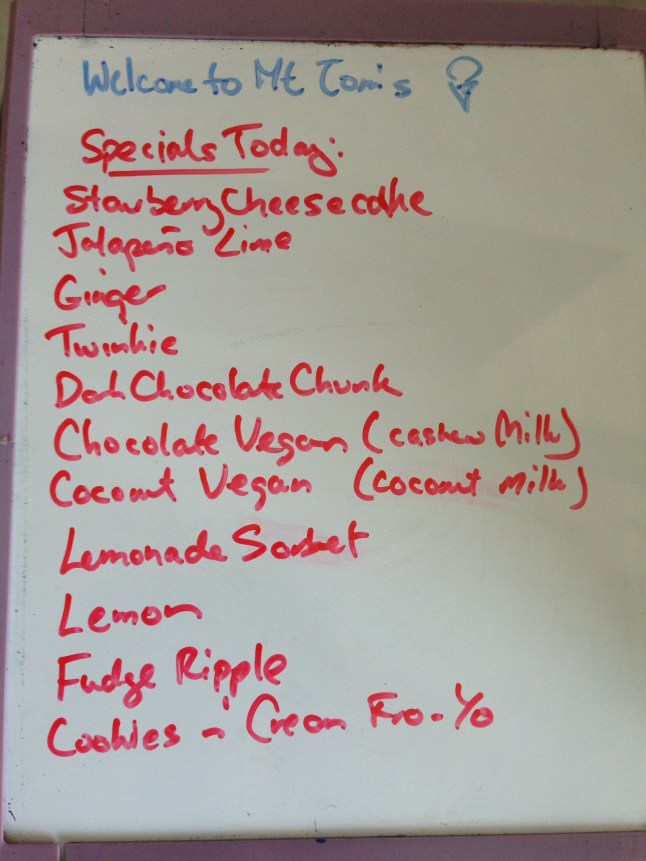 Welcome to Mt Tom's
Specials Today:
Stawberry Cheesecake
Jalapeño Lime
Ginger
Twinkie
Dark Chocolate Chunk
Chocolate Vegan (cashew Milk)
Coconut Vegan (coconut milk)
Lemonade Sorbet
Lemon
Fudge Ripple
Cookies n' Cream Fro-Yo